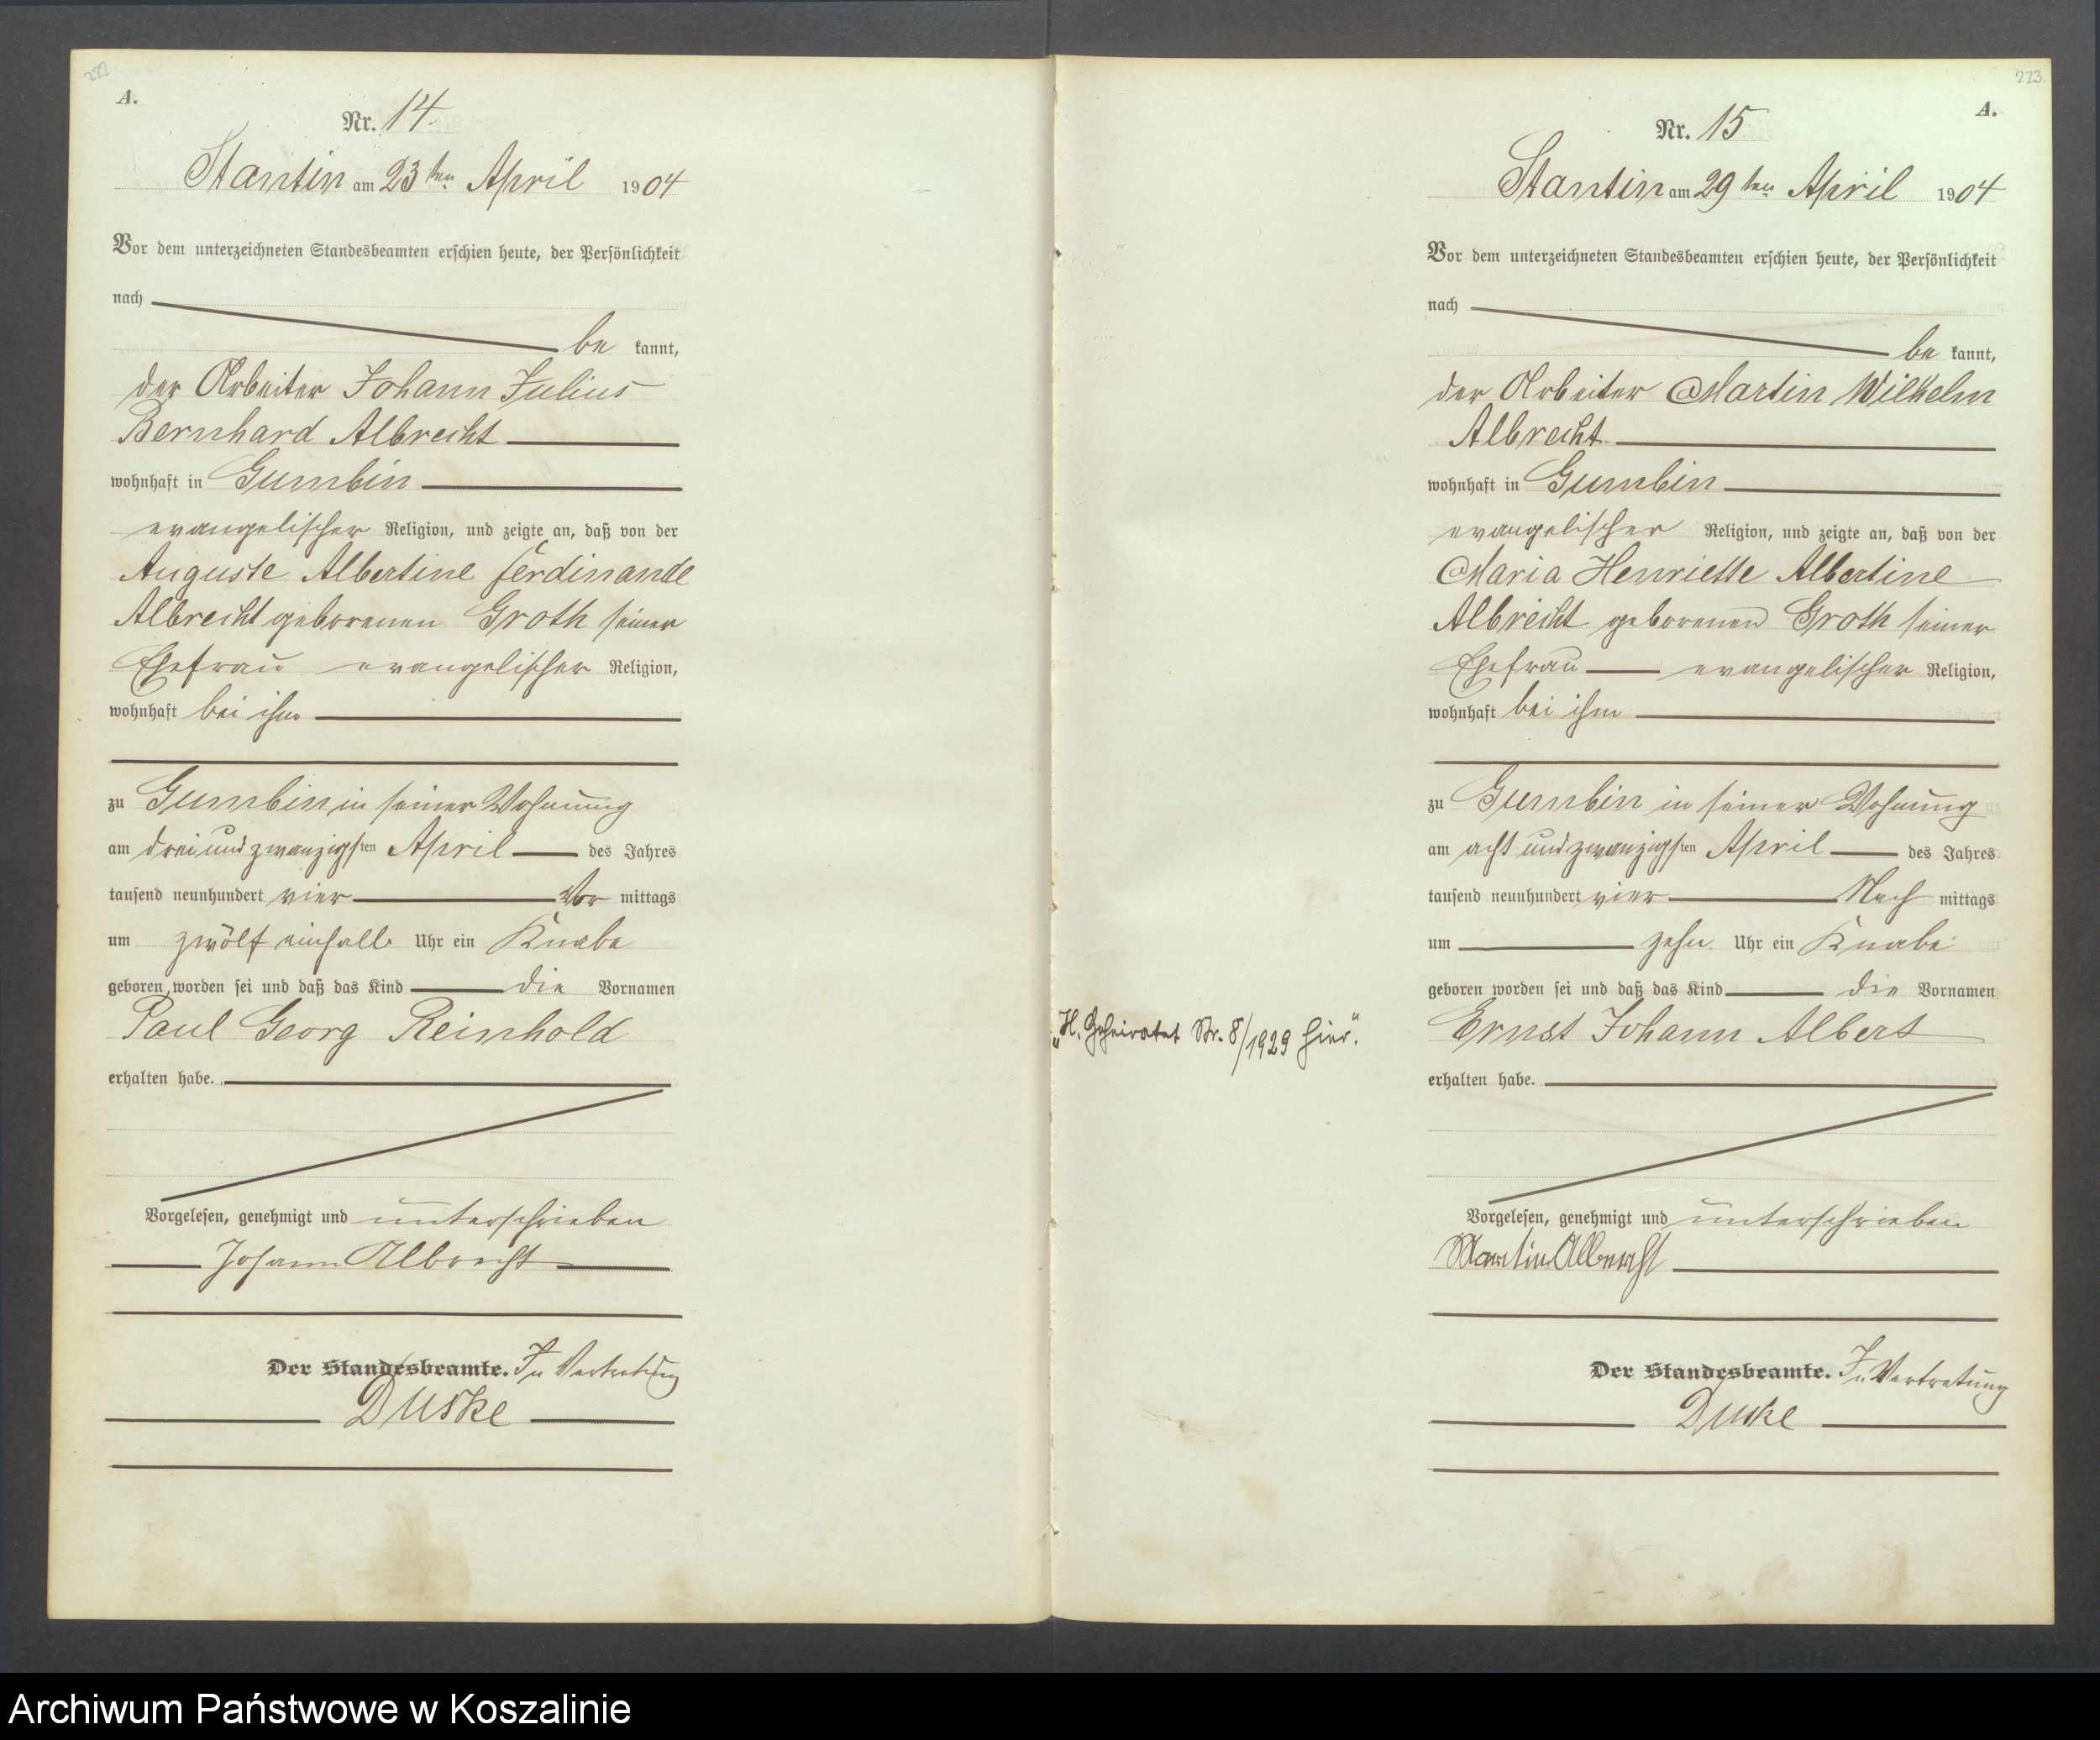 222
A.
Nr. 14
Stantin am 23ten April 1904
Vor dem unterzeichneten Standesbeamten erschien heute, der Persönlichkeit
nach
be kannt,
der Arbeiter Johann Julius
Bernhard Albrecht
wohnhaft in Gumbin
evangelischer Religion, und zeigte an, daß von der
Auguste Albertine Ferdinande
Albrecht geborenen Groth seiner
Ehefrau evangelischer Religion,
wohnhaft bei ihm
zu Gumbin in seiner Wohnung
am drei und zwanzigsten April des Jahres
tausend neunhundert vier Vor mittags
um zwölf einhalb Uhr ein Knabe
geboren worden sei und daß das Kind die Vornamen
Paul Georg Reinhold
erhalten habe.
Vorgelesen, genehmigt und unterschrieben
Johann Albrecht
Der Standesbeamte. In Vertretung
Duske
223.
A.
Nr. 15
Stantin am 29ten April 1904
Vor dem unterzeichneten Standesbeamten erschien heute, der Persönlichkeit
nach
be kannt,
der Arbeiter Martin Wilhelm
Albrecht
wohnhaft in Gumbin
evangelischer Religion, und zeigte an, daß von der
Maria Henriette Albertine
Albrecht geborenen Groth seiner
Ehefrau evangelischer Religion,
wohnhaft bei ihm
zu Gumbin in seiner Wohnung
am acht und zwanzigsten April des Jahres
tausend neunhundert vier Nach mittags
um zehn Uhr ein Knabe
geboren worden sei und daß das Kind die Vornamen
Ernst Johann Albert
erhalten habe.
Vorgelesen, genehmigt und unterschrieben
Martin Albrecht
Der Standesbeamte. In Vertretung
Duske
Geheiratet Nr. 8/1929 hier."
Archiwum Państwowe w Koszalinie